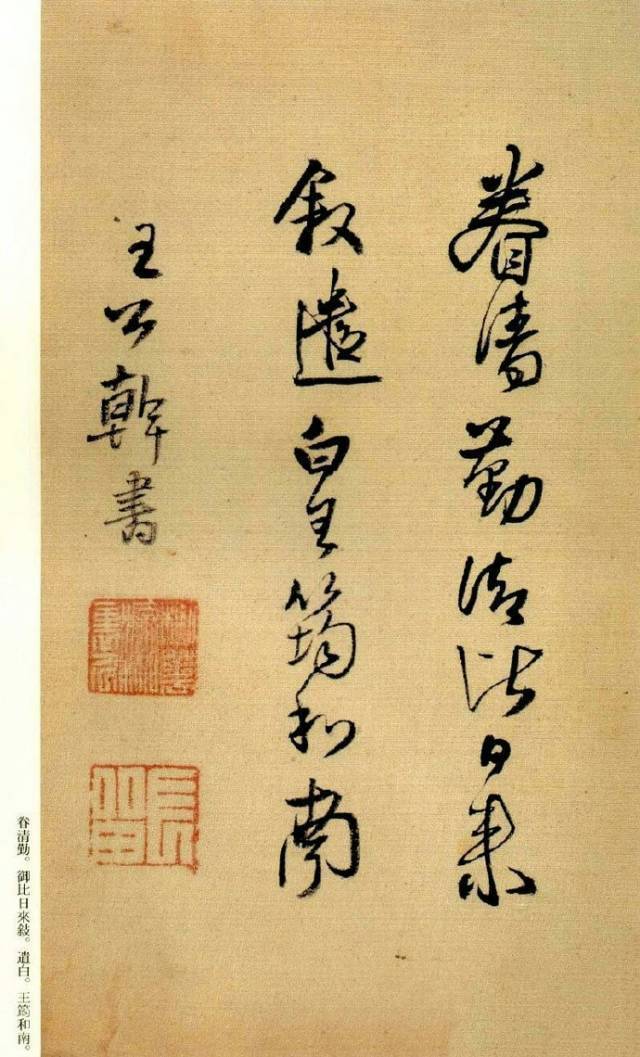 眷清勤御比日來
敘遣白王筠和南
王公幹書
眷清勤。御比日來敍。遣白。王筠和南。